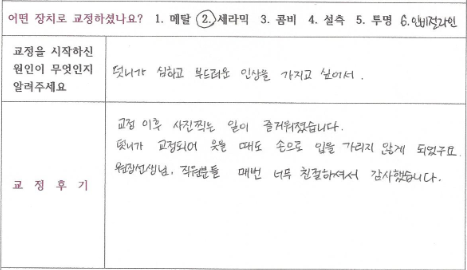 어떤 장치로 교정하셨나요? 1. 메탈 2. 세라믹 3. 콤비 4. 설측 5. 투명 6. 인비절라인
교정을 시작하신
원인이 무엇인지
알려주세요
덧니가 심하고 부드러운 인상을 가지고 싶어서.
교정후기
교정 이후 사진찍는 일이 즐거워졌습니다.
덧니가 교정되어 웃을 때도 손으로 입을 가리지 않게 되었구요.
원장선생님, 직원분들 매번 너무 친절하셔서 감사했습니다.